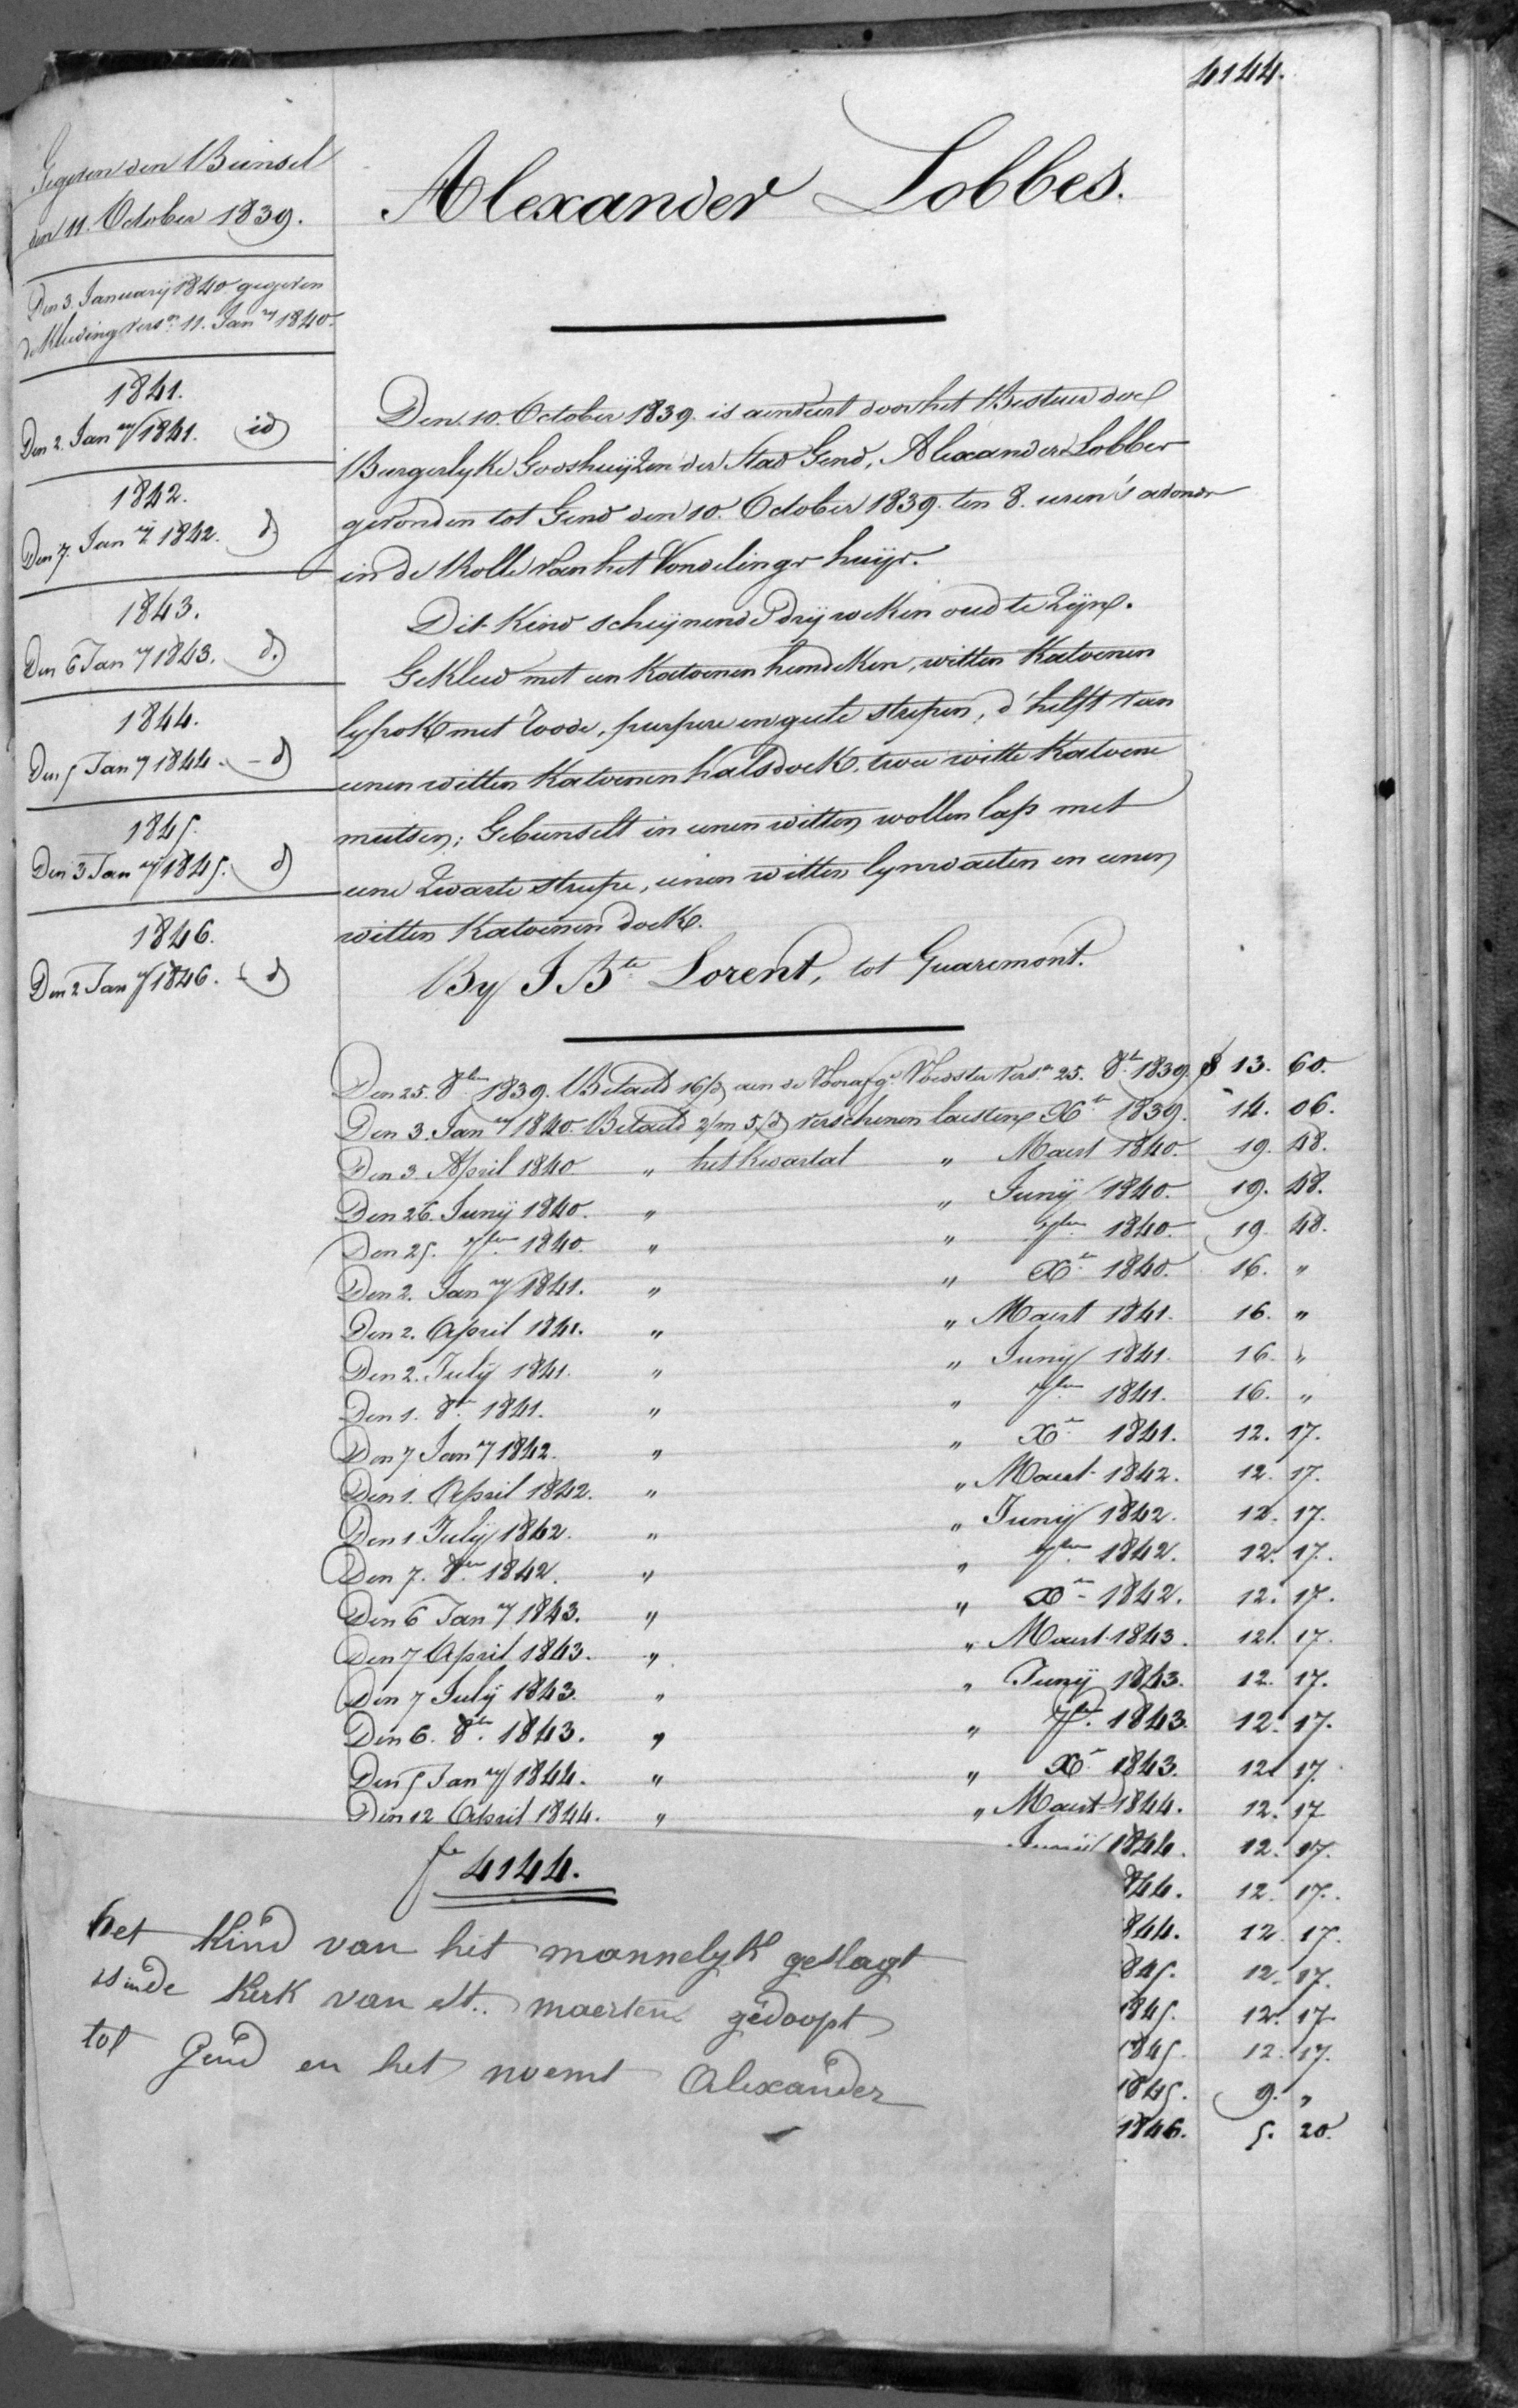 4144.
Gegeven den Bunsel
den 11. October 1839.
Den 3. January 1840 gegeven
de Kleeding vers.en 11. Jan.ry 1840.
1841.
Den 2. Jan.ry 1841. id
1842.
Den 7. Jan.ry 1842. d.
1843.
Den 6 Jan.ry 1843. d.
1844.
Den 5 Jan.ry 1844. - d
1845.
Den 3 Jan.ry 1845. d
1846.
Den 2 Jan.ry 1846. - d
Alexander Lobbes.
Den 10. October 1839. is aenveirt door het Bestuer der
Burgerlyke Godshuijzen der Stad Gend, Alexander Lobbes
gevonden tot Gend den 10. October 1839. ten 8. uren 's avonds
in de Rolle van het Vondelings huijs.
Dit Kind scheijnende drij weken oud te Zijn.
Gekleed met een Katoenen hemdeken, witten Katoenen
lyfrok met Roode, purpere en geele strepen, d'helft van
eenen witten Katoenen halsdoek, twee witte Katoene
mutsen; Gebunselt in eenen witten wollen lap met
eene Zwarte strepe, eenen witten lynwaeten en eenen
witten Katoenen doek.
By J. B.te Lorent, tot Quaremont.
Den 25. 8.ber 1839. Betaeld 16/d aen de Voorafg.e Voedster vers.en 25. 8.br 1839. f 13. 60.
Den 3. Jan.ry 1840. Betaeld 2/m 5/d verschenen laesten X.br 1839. 14. 06.
Den 3. April 1840 " het kwartal " Maert 1840. 19. 48.
Den 26. Junij 1840. " " Junij 1840. 19. 48.
Den 25. 7.ber 1840. " " 7.ber 1840. 19. 48.
Den 2. Jan.ry 1841. " " X.br 1840. 16. "
Den 2. April 1841. " " Maert 1841. 16. "
Den 2. Julij 1841. " " Junij 1841. 16. "
Den 1. 8.br 1841. " " 7.ber 1841. 16. "
Den 7 Jan.ry 1842. " " X.br 1841. 12. 17.
Den 1. April 1842. " " Maert 1842. 12. 17.
Den 1. Julij 1842. " " Junij 1842. 12. 17.
Den 7. 8.br 1842. " " 7.ber 1842. 12. 17.
Den 6 Jan.ry 1843. " " X.br 1842. 12. 17.
Den 7 April 1843. " " Maert 1843. 12. 17.
Den 7 Julij 1843. " " Junij 1843. 12. 17.
Den 6. 8.br 1843. " " 7.br 1843. 12. 17.
Den 5 Jan.ry 1844. " " X.br 1843. 12 17.
Den 12 April 1844. " " Maert 1844. 12. 17
Junij 1844. 12. 17.
844. 12. 17.
844. 12. 17.
845. 12. 17.
1845. 12. 17
1845. 12. 17.
1845. 9. "
1846. 5. 20.
f.o 4144.
het Kind van het mannelyk geslagt
is in de Kerk van st. maerten gedoopt
tot Gend en het noemt Alexander